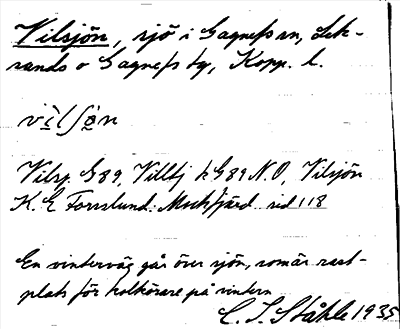 Vilsjön, sjö i Gagnefs sn, Lek-
sands o Gagnefs tg, Kopp. l.
vìlʃø̀n
Vilsj. G89, Villsj hG89 N.O, Vilsjön
K. E Forsslund: Muckfjärd sid 118
En vinterväg går över sjön, som är rast-
plats för kolkörare på vintern
C. I. Ståhle 1935